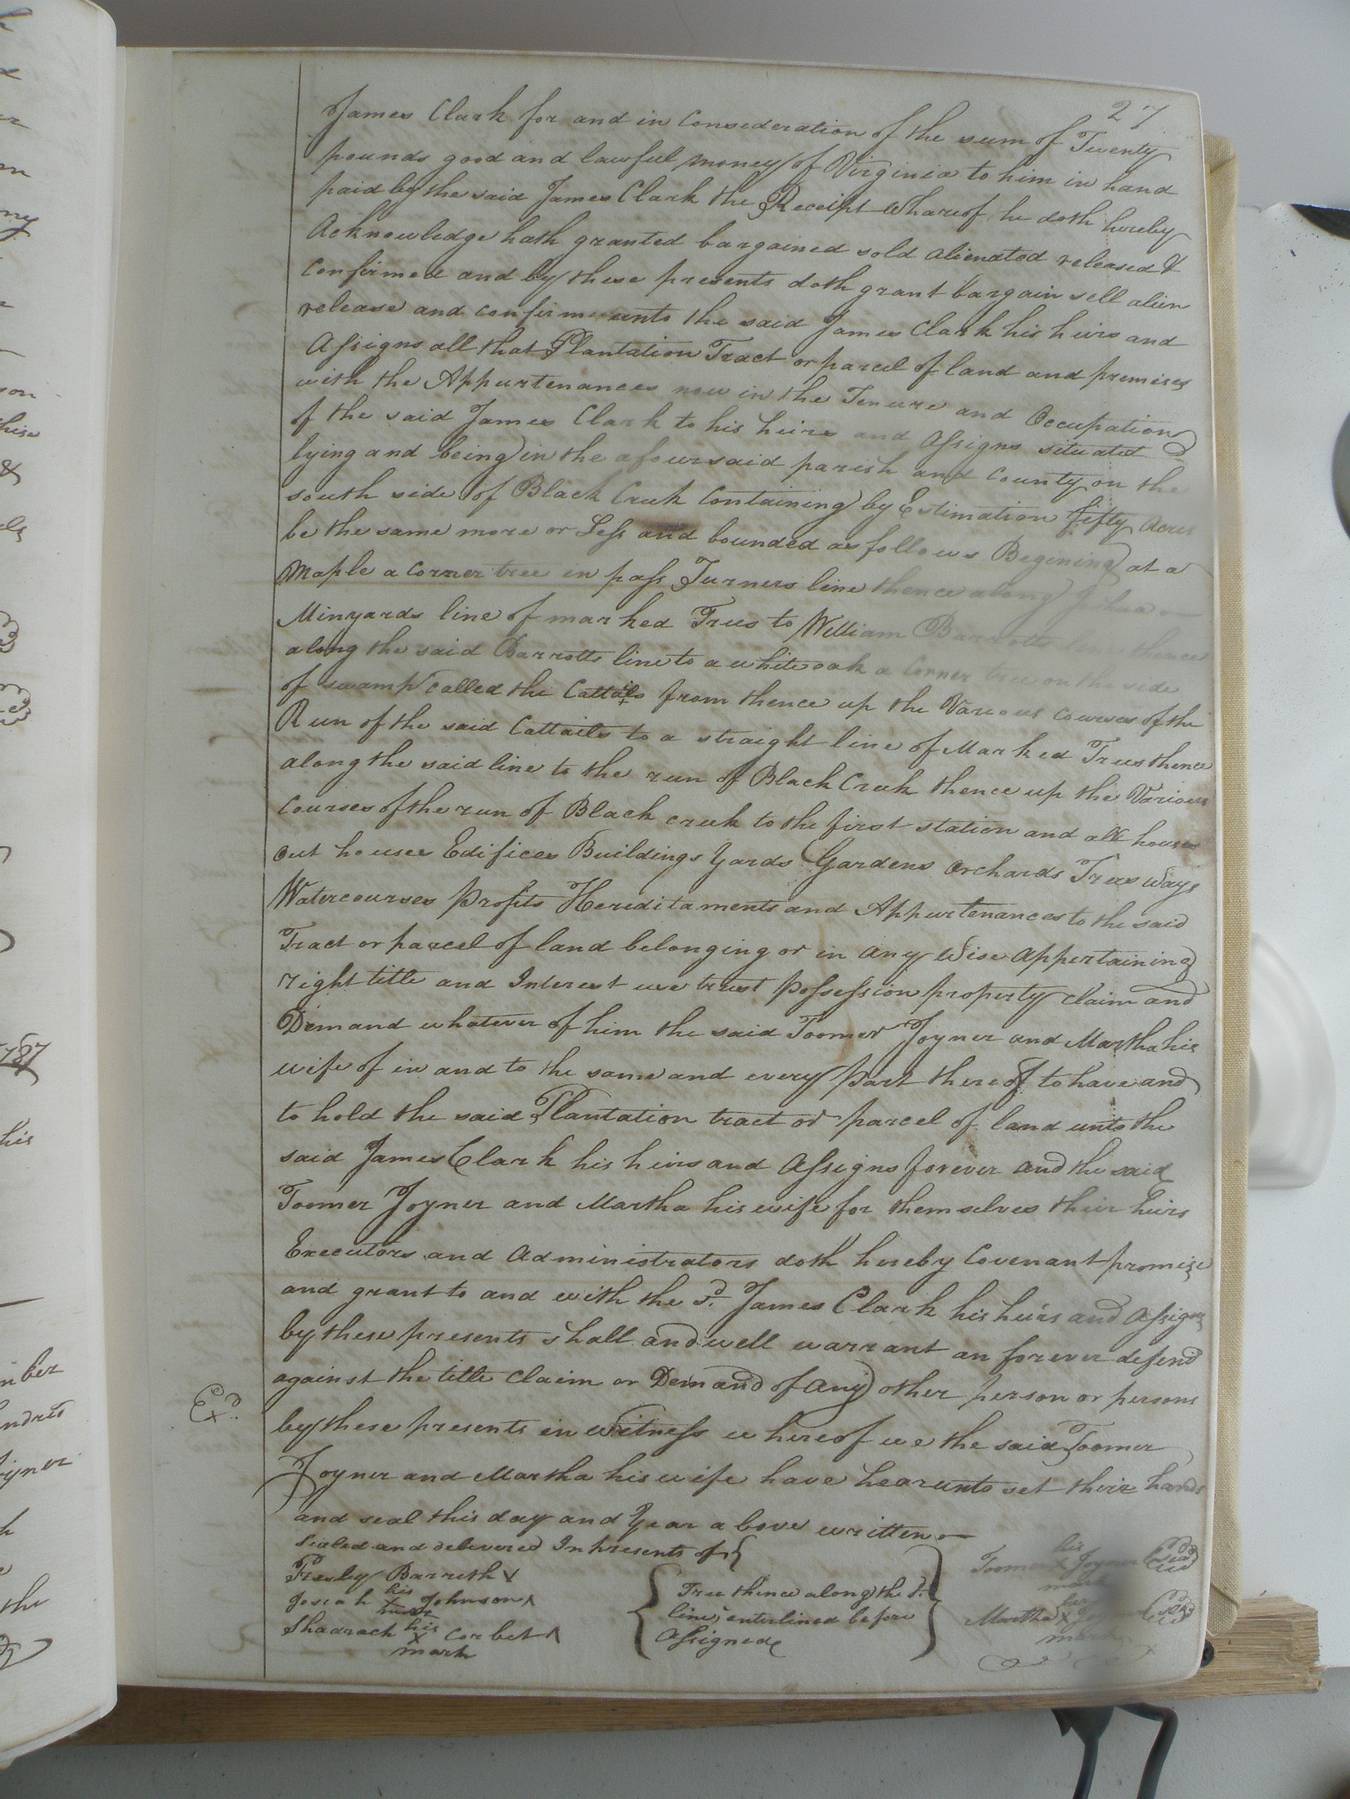 27
James Clark for and in Consederation of the sum of Twenty
pounds good and lawful money of Virginia to him in hand
paid by the said James Clark the Receipt whareof he doth hereby
Acknowledge hath granted bargained sold alienated released &
Confirmed and by these presents doth grant bargain sell alien
release and confirm unto the said James Clark his heirs and
Assigns all that Plantation Tract or parcel of land and premises
with the Appurtenances now in the Tenure and Occupation
of the said James Clark to his heirs and Assigns situated
lying and being in the afoursaid parish and County on the
south side of Black Creek Containing by Estimation fifty Acres
be the same more or Less and bounded as follows Begening at a
Maple a corner tree in pass Turners line thence along
Minyards line of marked Trees to William Barrotts thence
along the said Barrotts line to a white oak a Corner tree on the side
of swamp called the Cattails from thence up the Various courses of the
Run of the said Cattails to a straight line of Marked Trees thence
along the said line to the run of Black Creek thence up the Various
Courses of the run of Black creek to the first station and all houses
out houses Edifices Buildings Yards Gardens Orchards Trees Ways
Watercourses Profits Hereditaments and Appurtenances to the said
Tract or parcel of land belonging or in any Wise Appertaining
right title and Interest use trust Possession property claim and
Demand whatever of him the said Toomer Joyner and Martha his
wife of in and to the same and every part thereof to have and
to hold the said Plantation tract or parcel of land unto the
said James Clark his heirs and Assigns forever and the said
Toomer Joyner and Martha his wife for themselves their heirs
Executors and Administrators doth hereby Covenant promise
and grant to and with the sd. James Clark his heirs and Assigns
by these presents shall and well warrant an forever defend
against the title Claim or Demand of any other person or persons
Exd.
by these presents in witness whereof we the said Toomer
Joyner and Martha his wife have hearunto set their hands
and seal this day and Year above written
Sealed and delivered In presents of
Presley Barrett X
Josiah his Johnson
mark
Shadrach his Corbet
X
mark
Tree thence along the sd.
line enterlined before
Assigned
his
Toomer X Joyner Seal
mark
her
Martha X
mark